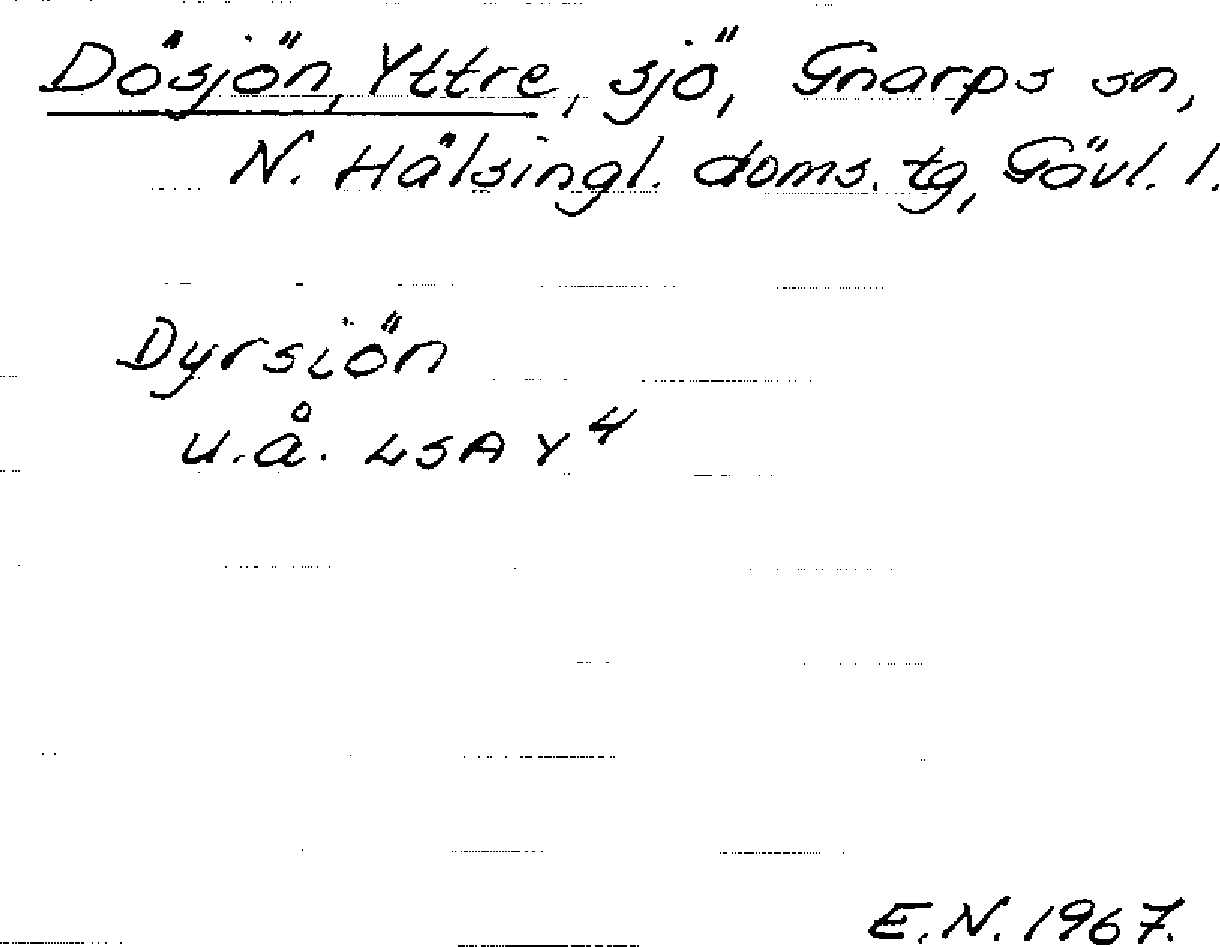 Dösjön, Yttre, sjö, Gnarps sn,
N. Hälsingl. doms. tg, Gävl. l.
Dyrsiön
u.å. LSA Y4
E.N. 1967.